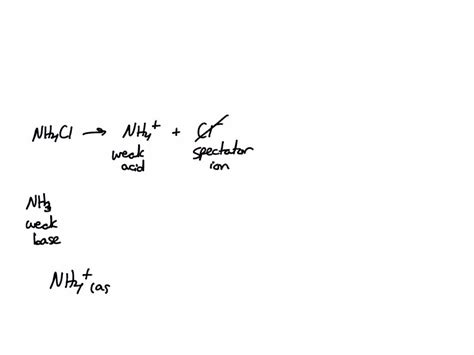 NH4Cl → NH4+ + Cl-
weak acid
spectator ion
NH3
weak
base
NH4+(aq